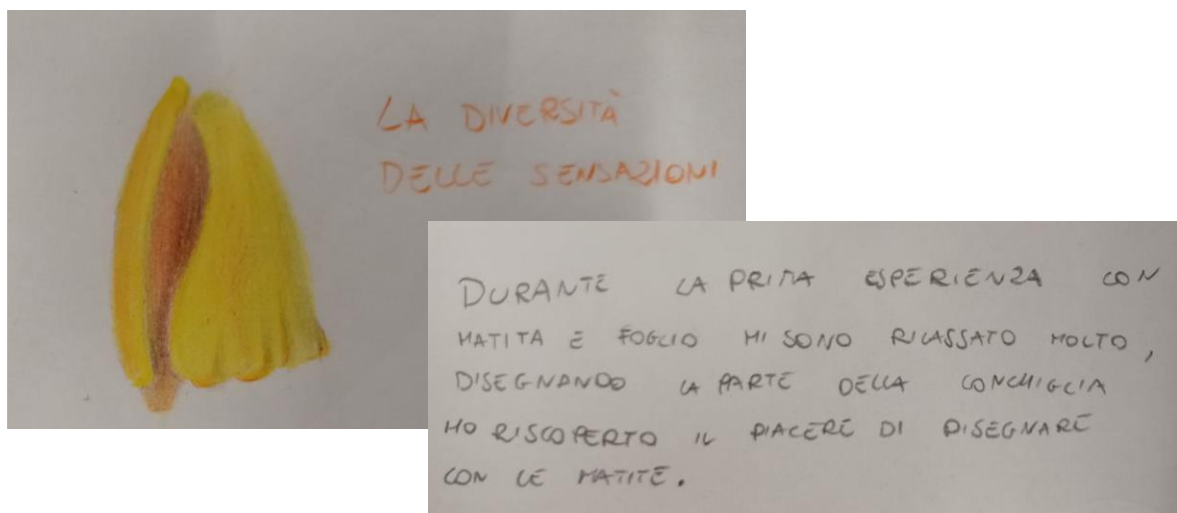 LA DIVERSITÀ
DELLE SENSAZIONI
DURANTE LA PRIMA ESPERIENZA CON
MATITA E FOGLIO MI SONO RILASSATO MOLTO,
DISEGNANDO LA PARTE DELLA CONCHIGLIA
HO RISCOPERTO IL PIACERE DI DISEGNARE
CON LE MATITE.